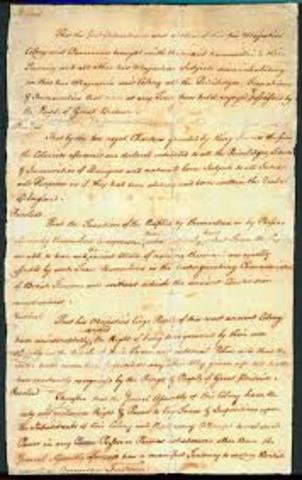 Resolved
That the first Adventurers and Settlers of this his Majesties
Colony and Dominion brought with them and transmitted to their
Posterity and all other his Majesties Subjects since inhabiting
in this his Majesties said Colony all the Priviledges, Franchises
& Immunities that have at any Time been held, enjoyed, & possessed by
the People of Great Britain.
That by the two royal Charters granted by King James the first
the Colonists aforesaid are declared intituled to all the Priviledges, Liberties
& Immunities of Denizens and natural born Subjects to all Intents
and Purposes as if they had been abiding and born within the Realm
of England.
Resolved
That the Taxation of the People by themselves or by Persons
able to bear and the easiest Mode of raising them
British Freedom and without which the ancient Constitution
Resolved
That his Majesties liege People of this most ancient Colony
have uninterruptedly the Right of being thus governed by their own
been constantly recognized by the Kings & People of Great Britain
Resolved
Therefore that the General Assembly of this Colony have the
only and exclusive Right & Power to lay Taxes & Impositions upon
the Inhabitants of this Colony and that every Attempt to vest such
Power in any Person or Persons whatsoever other than the
General Assembly aforesaid has a manifest Tendency to destroy British
as well as American Freedom